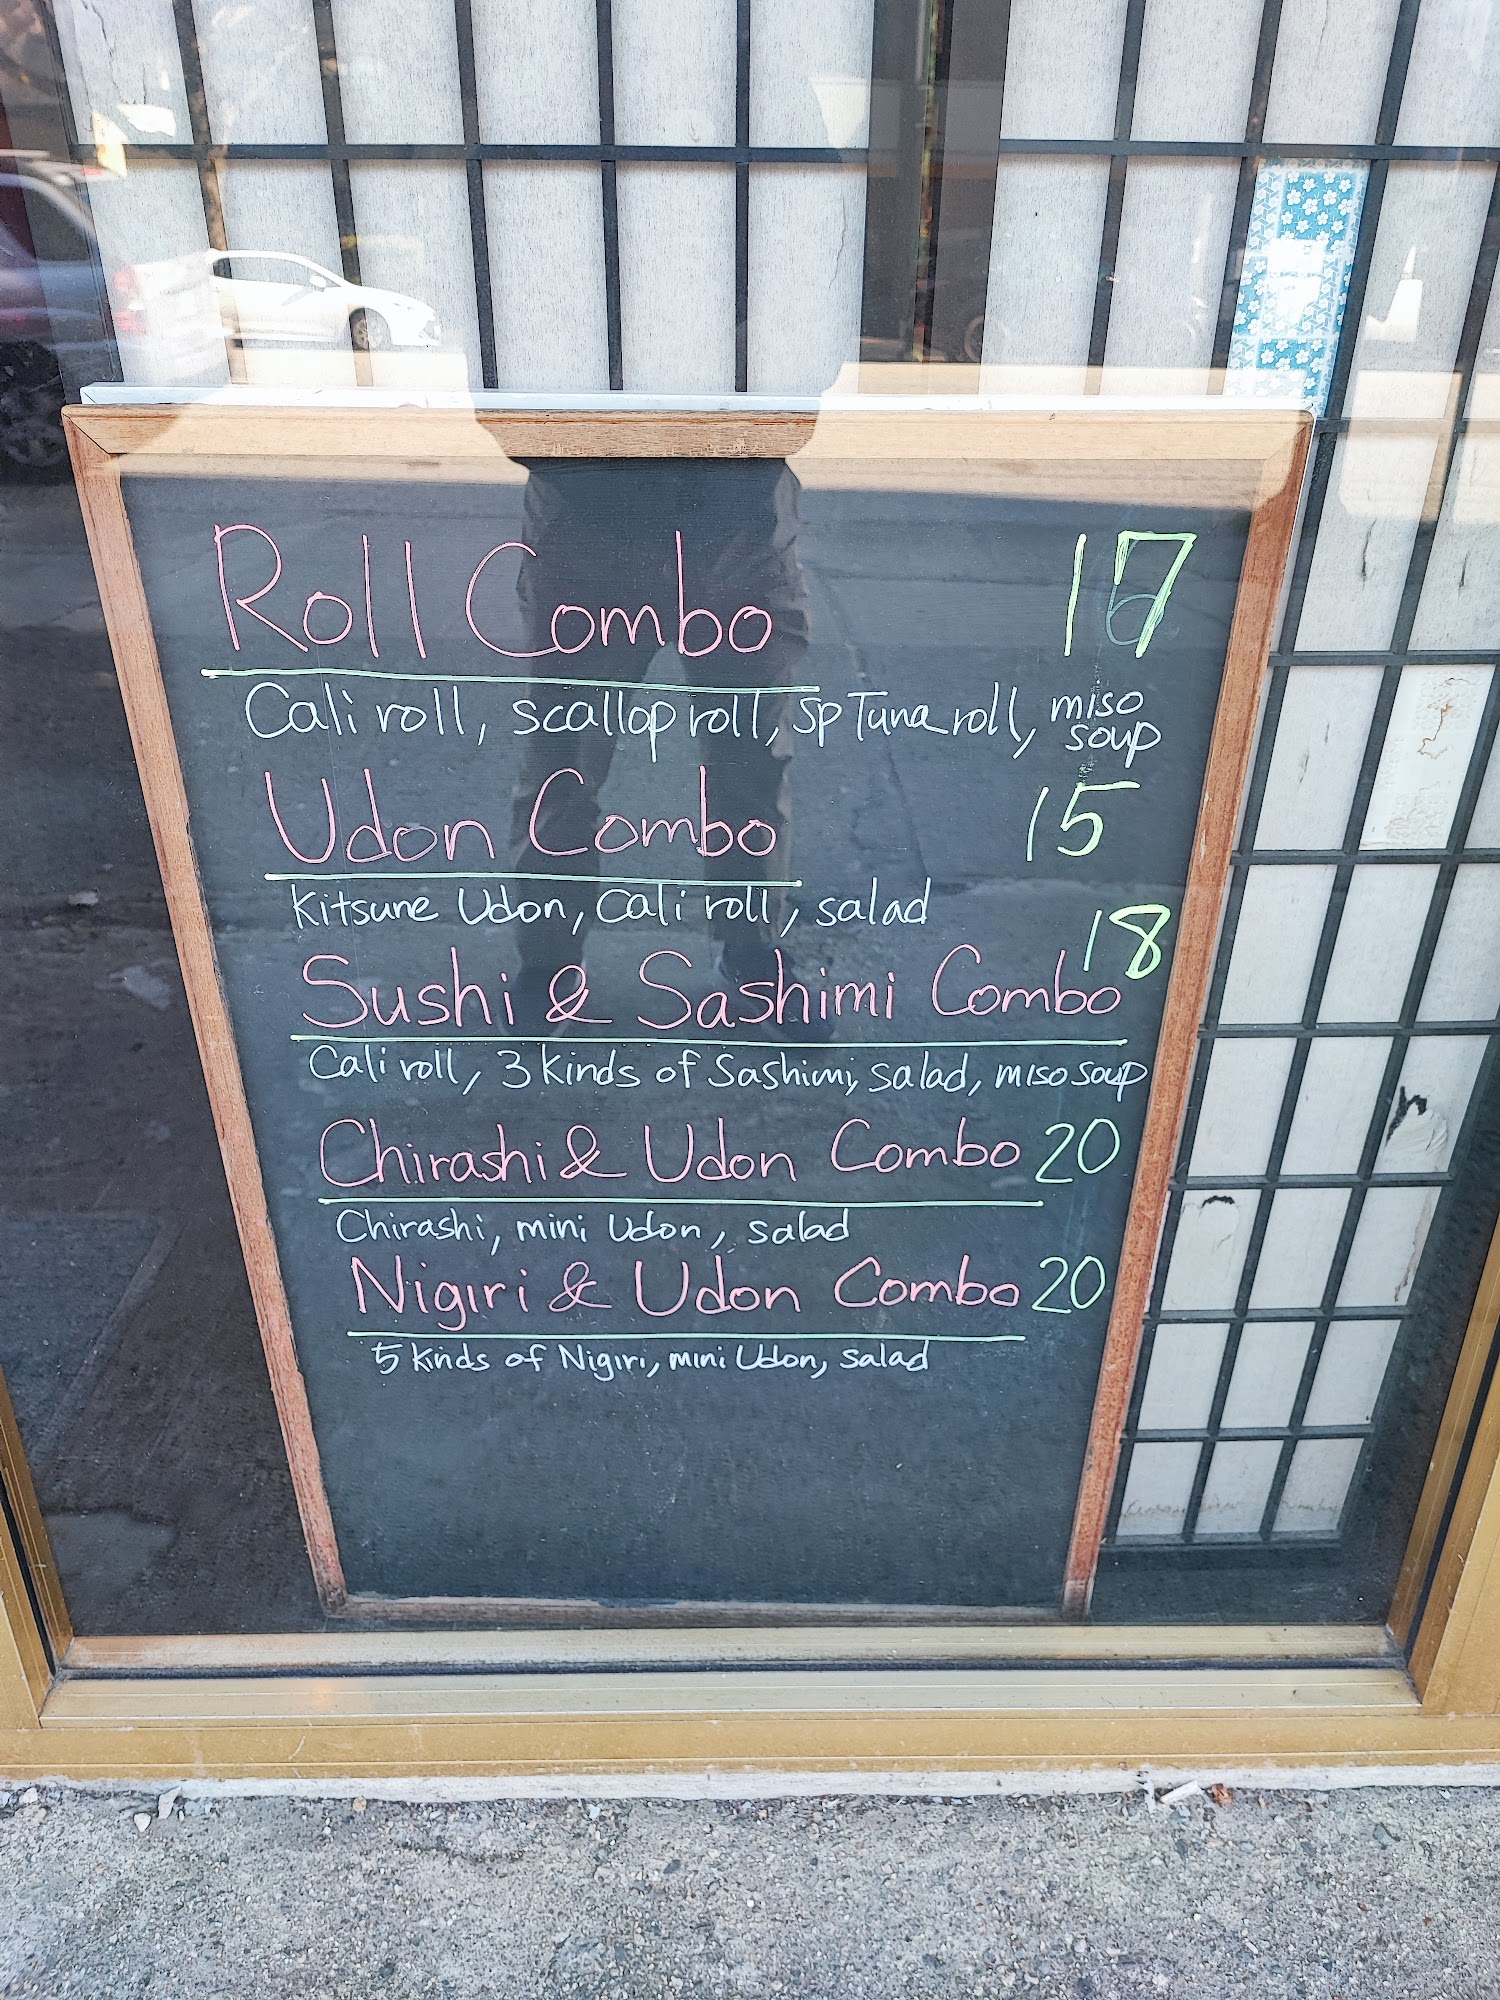 Roll Combo 17
Cali roll, scallop roll, sp Tuna roll, miso soup
Udon Combo 15
Kitsune Udon, Cali roll, salad
Sushi & Sashimi Combo 18
Cali roll, 3 kinds of Sashimi, salad, miso soup
Chirashi & Udon Combo 20
Chirashi, mini Udon, salad
Nigiri & Udon Combo 20
5 kinds of Nigiri, mini Udon, salad